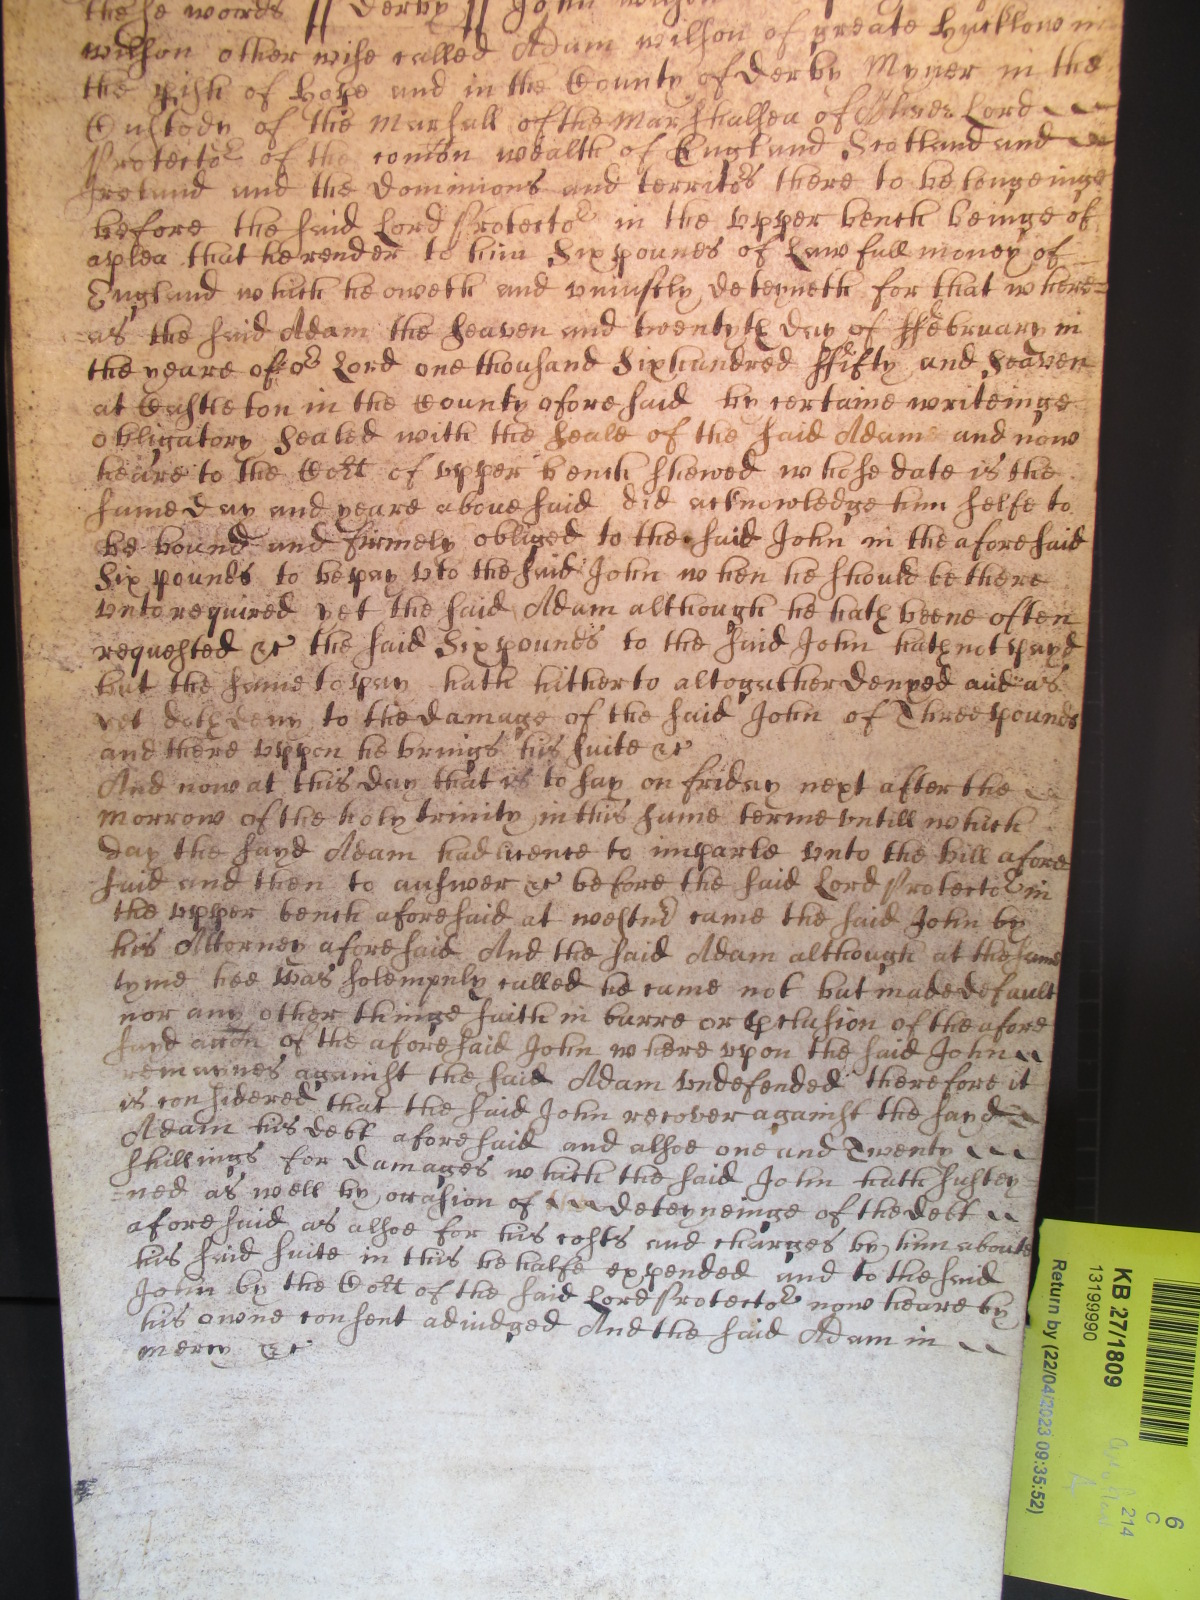 these words // Derby // John
wilson other wise called Adam wilson of greate Hucklow in
the pish of Hope and in the County of Derby Myner in the
Custody of the Marshall of the Marshalsea of Oliver Lord
Protector of the comon wealth of England Scotland and
Ireland and the Dominions and territors there to belongeinge
before the said Lord Protector in the upper bench beinge of
a plea that he render to him Six pounds of Lawfull money of
England which he oweth and uniustly deteyneth for that where=
=as the said Adam the seaven and twentyth day of ffebruary in
the yeare of or Lord one thousand Six hundred ffifty and Seaven
at Castleton in the County aforesaid by certaine writeinge
obligatory Sealed with the seale of the said Adam and now
heare to the Cort of upper bench shewed whose date is the
same Day and yeare above said did acknowledge him selfe to
be bound and firmely obliged to the said John in the aforesaid
Six pounds to be pay vto the said John when he should be there
unto required yet the said Adam although he hath beene often
requested &c the said Six pounds to the said John hath not payd
but the same to pay hath hitherto altogather denyed and as
yet doth deny to the damage of the said John of Three pounds
and there uppon he brings his suite &c
And now at this day that is to say on friday next after the
morrow of the holy trinity in this same terme untill which
day the sayd Adam had licence to imparle unto the bill afore
said and then to answer &c before the said Lord Protector in
the upper bench aforesaid at westmr came the said John by
his Attorney aforesaid And the said Adam although at the same
tyme hee was solempnly called he came not but made default
nor any other thinge saith in barre or pclusion of the afore
sayd accon of the aforesaid John where upon the said John
remaynes against the said Adam undefended therefore it
is considered that the said John recover against the sayd
Adam his debt aforesaid and alsoe one and Twenty
shillings for damages which the said John hath sustey=
=ned as well by ocasion of deteyneinge of the debt
aforesaid as alsoe for his costs and charges by him aboute
his said suite in this behalfe expended and to the said
John by the Cort of the said Lord Protector now heare by
his owne consent adiudged And the said Adam in
mercy &c
KB 27/1809
13199990
Return by (22/04/2023 09:35:52)
6
C
214